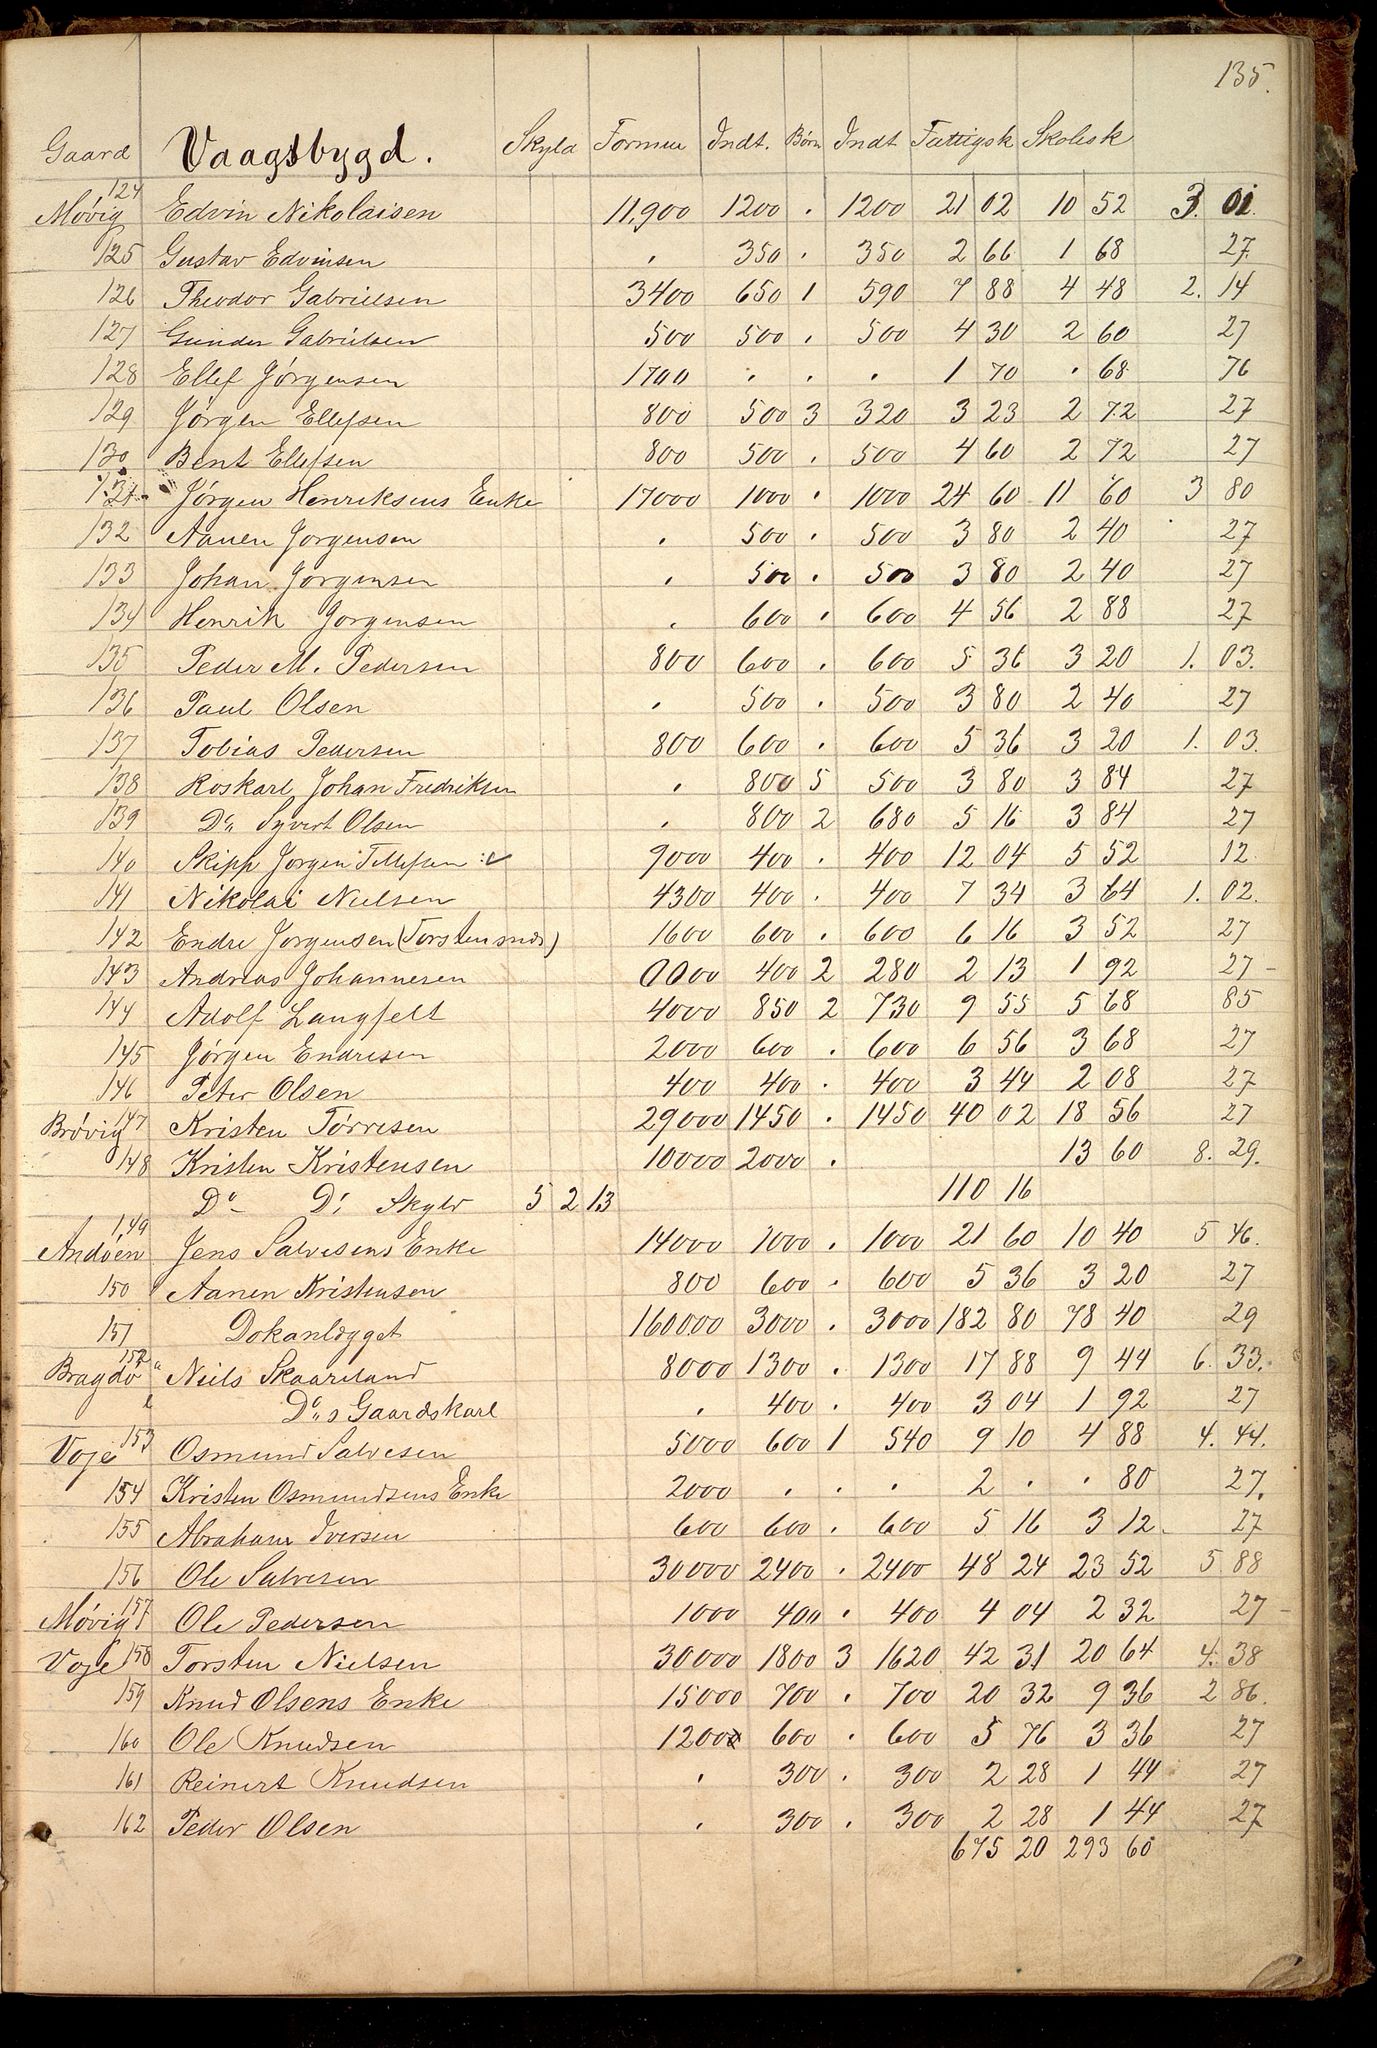 135.
Gaard Vaagsbygd. Skyld Formue Indt. Børn Indt Fattigsk Skolesk
Møvig 124 Edvin Nikolaisen 11,900 1200 . 1200 21 02 10 52 3. 01.
125 Gustav Edvinsen . 350 . 350 2 66 1 68 27.
126 Theodor Gabrielsen 3400 650 1 590 7 88 4 48 2. 14
127 Gunder Gabrielsen 500 500 . 500 4 30 2 60 27
128 Ellef Jørgensen 1700 . . . 1 70 . 68 76
129 Jørgen Ellefsen 800 500 3 320 3 23 2 72 27
130 Bent Ellefsen 800 500 . 500 4 60 2 72 27
131 Jørgen Henriksens Enke 17000 1000 . 1000 24 60 11 60 3 80
132 Aanen Jørgensen . 500 . 500 3 80 2 40 27
133 Johan Jørgensen . 500 . 500 3 80 2 40 27
134 Henrik Jørgensen . 600 . 600 4 56 2 88 27
135 Peder M. Pedersen 800 600 . 600 5 36 3 20 1. 03.
136 Paul Olsen . 500 . 500 3 80 2 40 27
137 Tobias Pedersen 800 600 . 600 5 36 3 20 1. 03.
138 Roskarl Johan Fredriksen . 800 5 500 3 80 3 84 27
139 Do Syvert Olsen . 800 2 680 5 16 3 84 27
140 Skipp Jørgen Tellefsen 9000 400 . 400 12 04 5 52 12
141 Nikolai Nielsen 4300 400 . 400 7 34 3 64 1. 02.
142 Endre Jørgensen (Torstensnæs) 1600 600 . 600 6 16 3 52 27
143 Andreas Johannesen 0000 400 2 280 2 13 1 92 27 -
144 Adolf Langfelt 4000 850 2 730 9 55 5 68 85
145 Jørgen Endresen 2000 600 . 600 6 56 3 68 27
146 Peter Olsen 400 400 . 400 3 44 2 08 27
Brøvig 147 Kristen Tørresen 29000 1450 . 1450 40 02 18 56 27
148 Kristen Kristensen 10000 2000 . 13 60 8. 29.
Do Do Skyld 5 2 13 110 16
Andøen 149 Jens Salvesens Enke 14000 1000 . 1000 21 60 10 40 5 46.
150 Aanen Kristensen 800 600 . 600 5 36 3 20 27
151 Dokanlægget 160000 3000 . 3000 182 80 78 40 29
Bragdø 152 Niels Skaareland 8000 1300 . 1300 17 88 9 44 6. 33.
Dos Gaardskarl . 400 . 400 3 04 1 92 27
Voje 153 Osmund Salvesen 5000 600 1 540 9 10 4 88 4. 44.
154 Kristen Osmundsens Enke 2000 . . . 2 . . 80 27.
155 Abraham Iversen 600 600 . 600 5 16 3 12 27
156 Ole Salvesen 30000 2400 . 2400 48 24 23 52 5 88
Møvig 157 Ole Pedersen 1000 400 . 400 4 04 2 32 27 -
Voje 158 Torsten Nielsen 30000 1800 3 1620 42 31 20 64 4. 38
159 Knud Olsens Enke 15000 700 . 700 20 32 9 36 2 86.
160 Ole Knudsen 1200 600 . 600 5 76 3 36 27
161 Reinert Knudsen . 300 . 300 2 28 1 44 27
162 Peder Olsen . 300 . 300 2 28 1 44 27
675 20 293 60